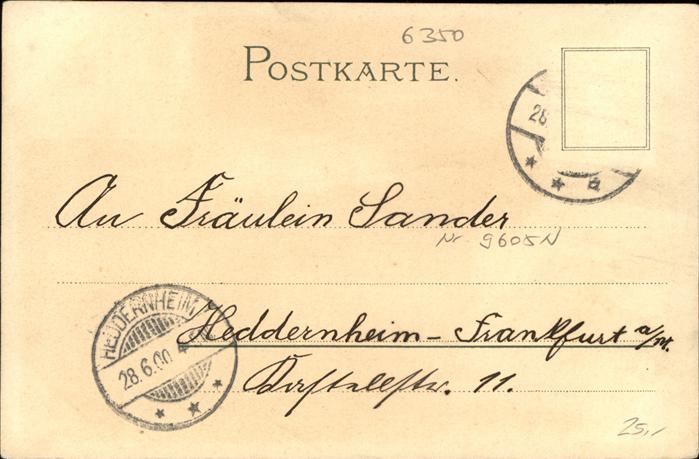 6350
POSTKARTE.
28.
An Fräulein Sander
Nr 9605N
HEDDERNHEIM
28.6.00.
Heddernheim - Frankfurt a/M.
11.
25,-